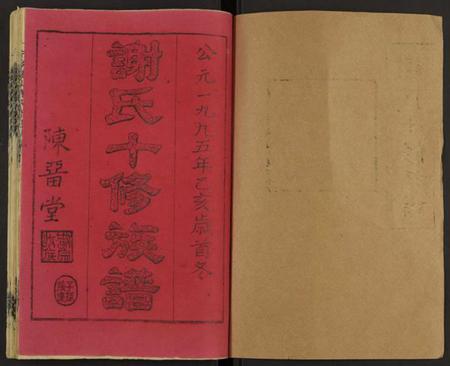 公元一九九五年乙亥歲首冬
謝氏十修族譜
陳留堂